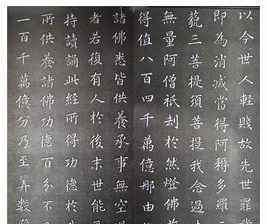 以今世人輕賤故先世罪
即為消滅當得阿耨多羅
藐三菩提須菩提我念過
無量阿僧祇劫於然燈佛
得值八百四千萬億那由
諸佛悉皆供養承事無空
者若復有人於後末世能
持讀誦此經所得功德於
所供養諸佛功德百分不
一百千萬億分乃至算數